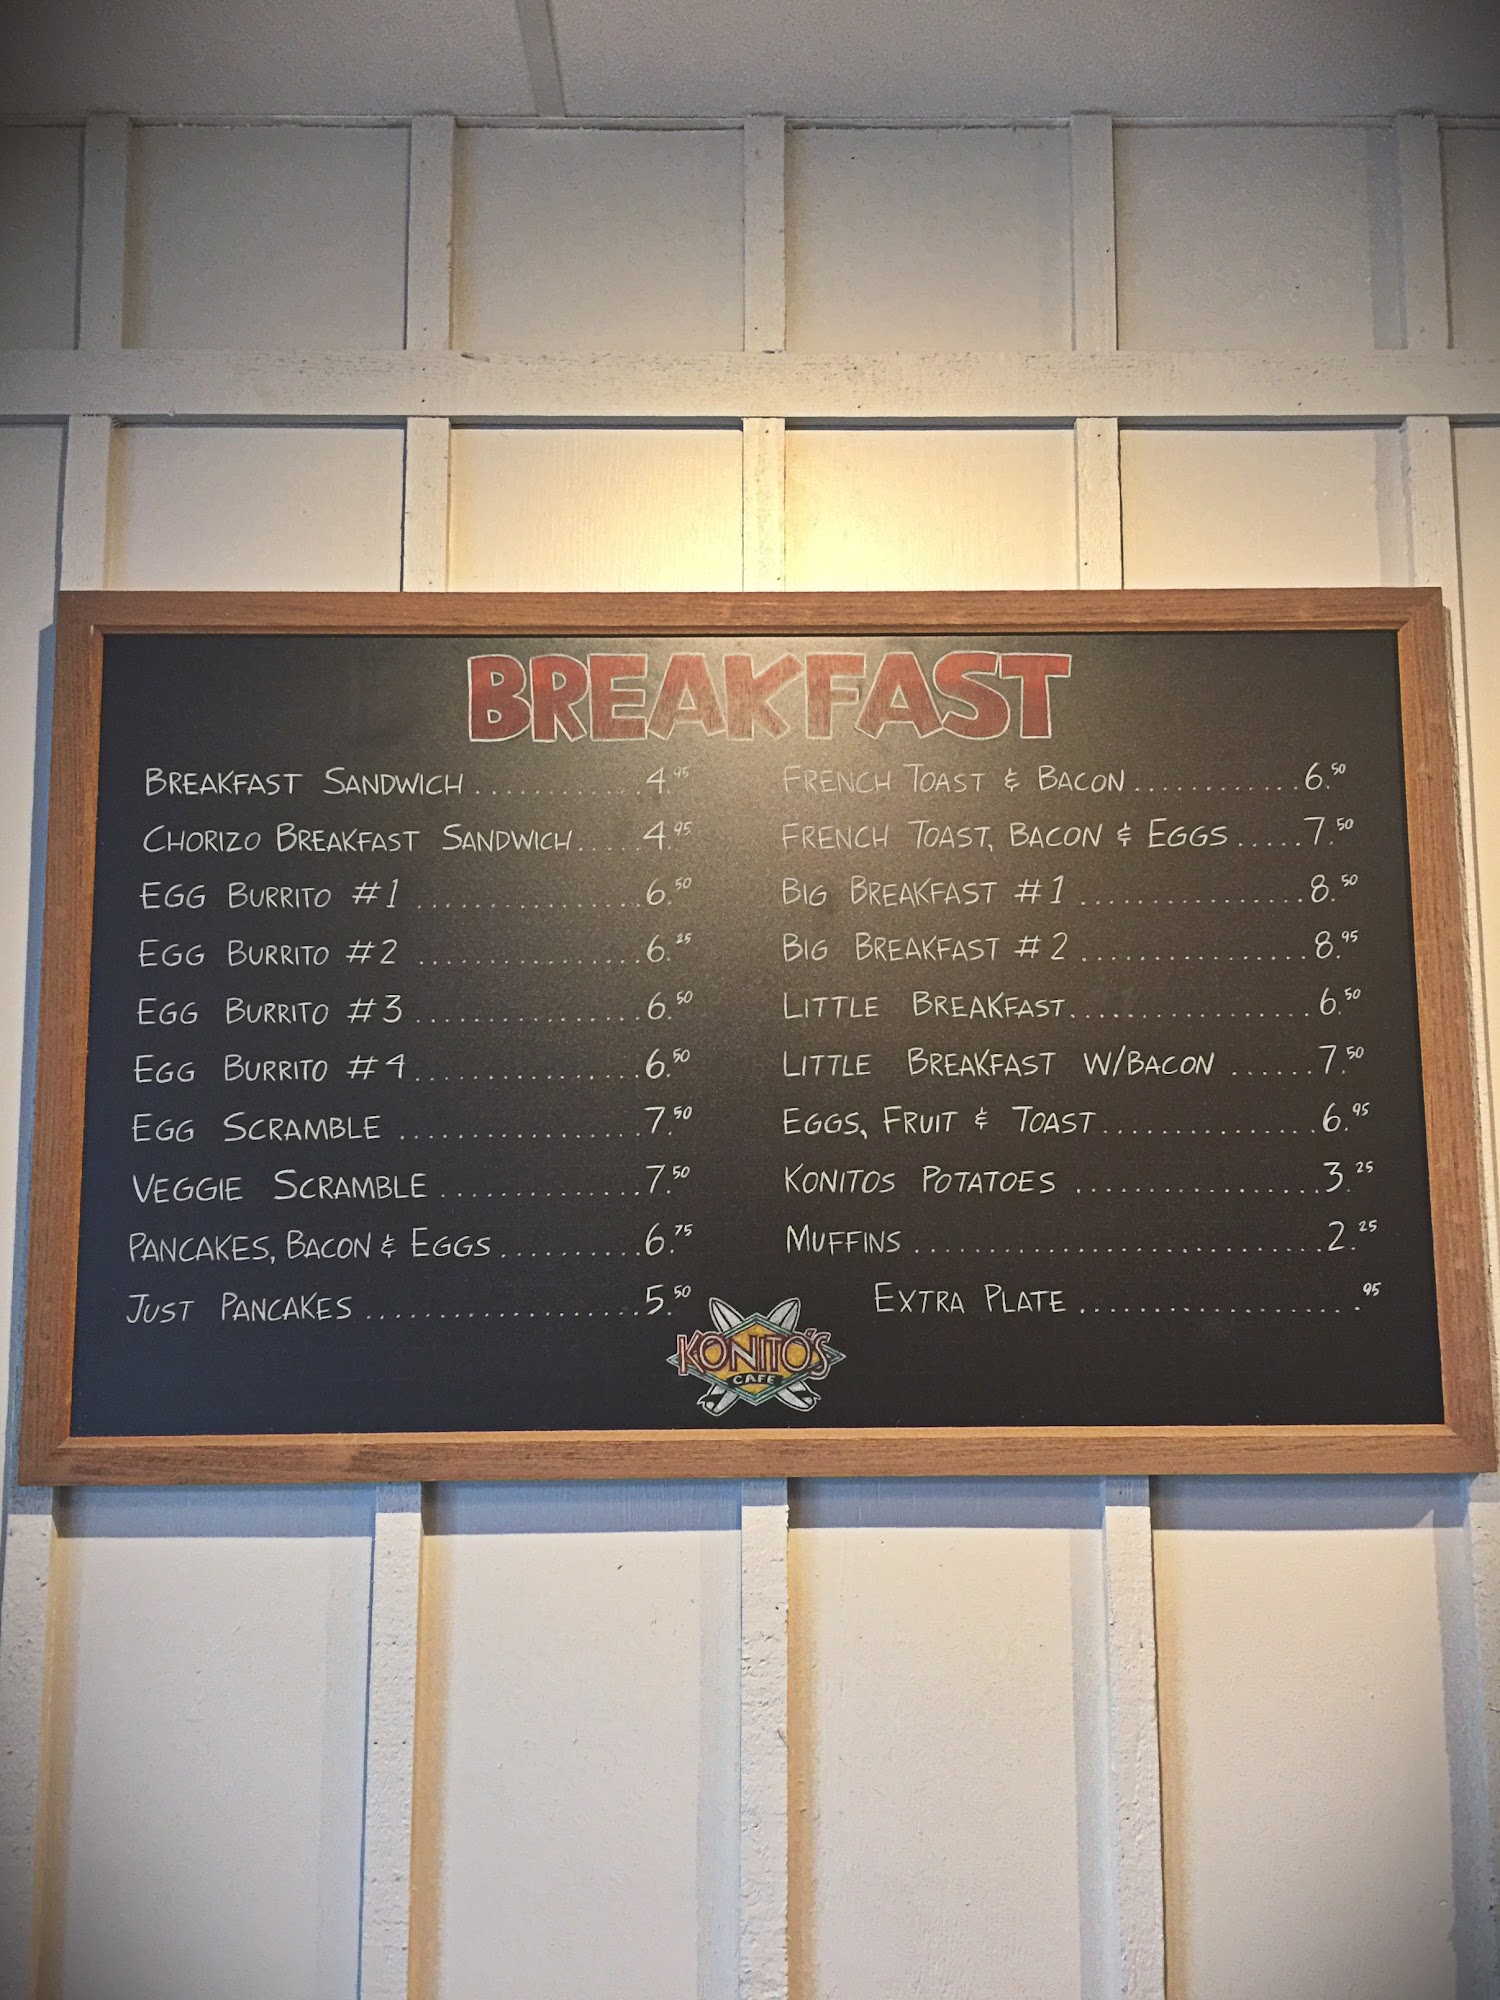 BREAKFAST
BREAKFAST SANDWICH...........4.95
CHORIZO BREAKFAST SANDWICH.....4.95
EGG BURRITO #1................6.50
EGG BURRITO #2................6.25
EGG BURRITO #3................6.50
EGG BURRITO #4................6.50
EGG SCRAMBLE.................7.50
VEGGIE SCRAMBLE..............7.50
PANCAKES, BACON & EGGS..........6.75
JUST PANCAKES...................5.50
FRENCH TOAST & BACON............6.50
FRENCH TOAST, BACON & EGGS.....7.50
BIG BREAKFAST #1................8.50
BIG BREAKFAST #2................8.95
LITTLE BREAKFAST.................6.50
LITTLE BREAKFAST W/BACON......7.50
EGGS, FRUIT & TOAST...............6.95
KONITOS POTATOES.................3.25
MUFFINS............................2.25
EXTRA PLATE....................95
KONITO'S
CAFE